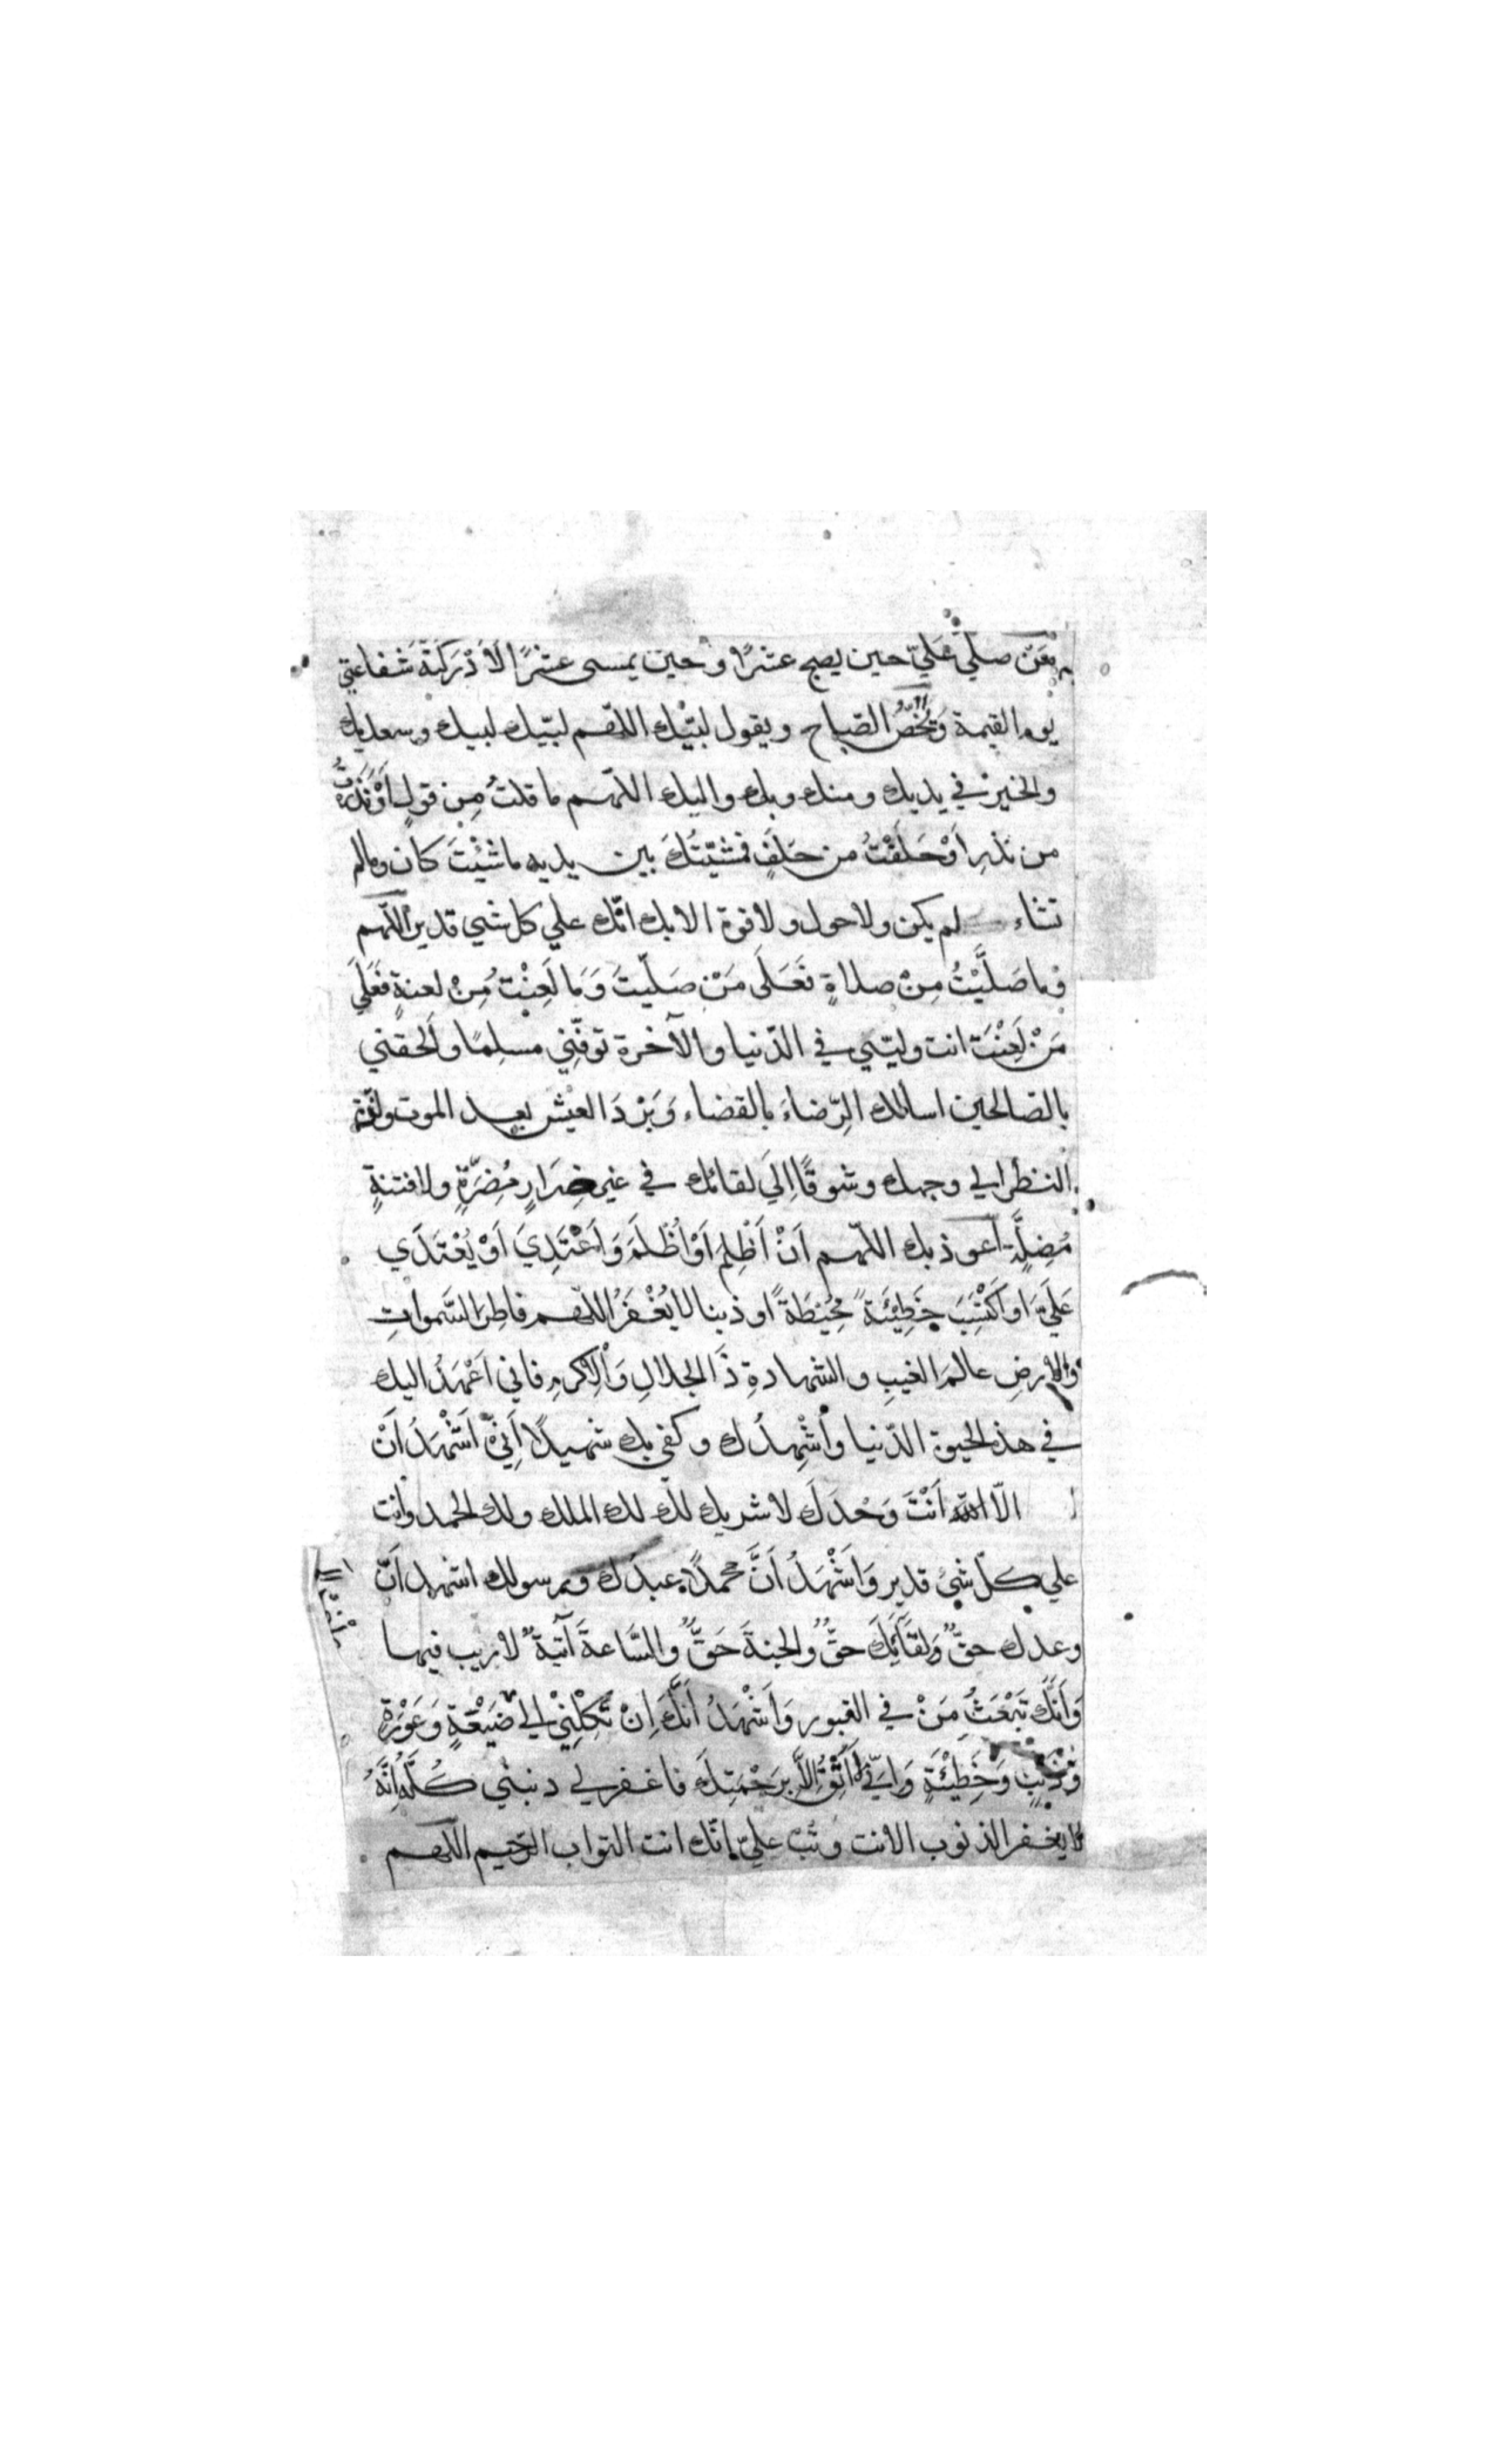 مَنْ صلّى عَلَيّ حين يصبح عشرًا وحين يمسى عشرًا لاَدْرَكَتْهُ شَفاعتي
يوم القيمة وَيُخَصُّ الصّباح ويقول لبّيْك اللّهم لبّيك لبيك وسعديك
والخير في يديك ومنك وبك واليك اللّهم ما قلتُ مِن قولٍ اَوْ نَذَرْتُ
من نذرٍ اَوْ حَلَفْتُ من حَلَفٍ فمَشيّتُكَ بين يديه ما شئْتَ كان ومالم
تشاء لم يكن ولاحول ولاقوة الا بك انّك علي كل شيء قدير اللّهم
وما صَلَّيْتُ مِنْ صلاةٍ فَعَلَى مَنْ صَلّيتَ وَمَا لَعِنْتُ مِنْ لعنةٍ فَعَلَي
مَنْ لَعَنْتَ انت وليّي في الدّنيا والآخرة توفّني مسلِمًا وَالحقني
بالصّالحين اسالك الرِّضاءَ بالقضاء وَبَرْدَ العيْش بعد الموت ولذّة
النظر الي وجهك وشوقًا اِلَي لقائك في غير ضِرَارٍ مُضِرَّةٍ ولا فتنةٍ
مُضِلَّةٍ اعوذ بك اللّهم اَنْ اَظْلِمَ اَوْ اُظْلَمَ وَاَعْتَدِيَ اَوْ يُعْتَدَي
عَلَيَّ اواَكْتسِبَ خَطِيْئَةً مُحِيْطَةً او ذنبا لا يُغْفَرُ اللّهم فاطِرَ السَّموٰاتِ
والارضِ عالمَ الغيبِ والشهادةِ ذَا الجلالِ وَالْاِكرمِ فاني اَعْهَدُ اليك
في هذ الحيوة الدّنيا واُشْهِدُك وكفي بك شهيدًا اَنِّيْ اَشْهَدُ اَنْ
الّا اللّه اَنْتَ وَحْدَكَ لاشريك لك لك الملك ولك الحمد وانت
علي كلّ شيْ قدير وَاَشْهَدُ اَنَّ محمدًا عبدك ورسولك اشهد اَنّ
وعدك حقٌّ وَلقَآئِكَ حقٌّ والجنةَ حَقٌّ والسَّاعةَ آتيةٌ لاريب فيها
وَاَنَّكَ تَبْعَثُ مَنْ في القبور وَاَشْهَدُ اَنَّكَ اِنْ تَكِلْنِيْ الي ضَيْعَةٍ وَعَوْرَةٍ
وَذَنْبٍ وَخَطِيْئَةٍ وَاِنِّي لا اَثِقُ اِلَّا بِرَحْمَتِكَ فاغفرلي ذنبي كُلَّهُ اِنَّهُ
لا يغفر الذنوب الا نت وتُبْ عليّ انّك انت التواب الرّحيم اللّهم